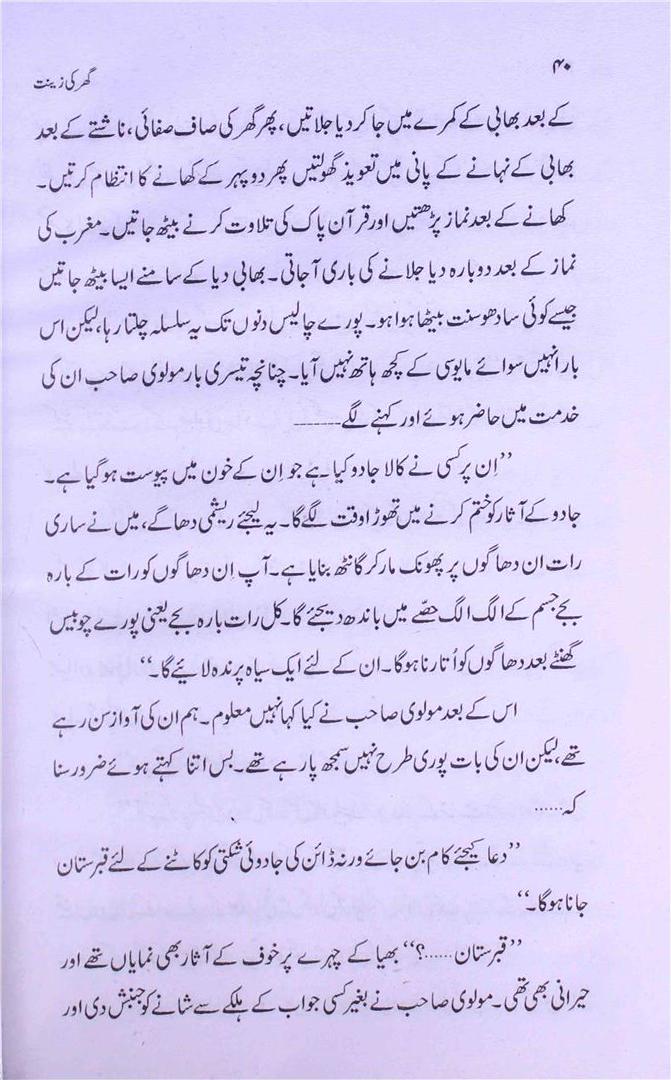 ۴۰
گھر کی زینت
کے بعد بھابی کے کمرے میں جا کر دیا جلاتیں، پھر گھر کی صاف صفائی، ناشتے کے بعد
بھابی کے نہانے کے پانی میں تعویذ گھولتیں پھر دوپہر کے کھانے کا انتظام کرتیں۔
کھانے کے بعد نماز پڑھتیں اور قرآن پاک کی تلاوت کرنے بیٹھ جاتیں۔ مغرب کی
نماز کے بعد دوبارہ دیا جلانے کی باری آجاتی۔ بھابی دیا کے سامنے ایسا بیٹھ جاتیں
جیسے کوئی سادھو سنت بیٹھا ہوا ہو۔ پورے چالیس دنوں تک یہ سلسلہ چلتا رہا، لیکن اس
بار انہیں سوائے مایوسی کے کچھ ہاتھ نہیں آیا۔ چنانچہ تیسری بار مولوی صاحب ان کی
خدمت میں حاضر ہوئے اور کہنے لگے۔۔۔۔۔۔۔
’’اِن پر کسی نے کالا جادو کیا ہے جو اِن کے خون میں پیوست ہو گیا ہے۔
جادو کے آثار کو ختم کرنے میں تھوڑا وقت لگے گا۔ یہ لیجئے ریشمی دھاگے، میں نے ساری
رات ان دھاگوں پر پھونک مار کر گانٹھ بنایا ہے۔ آپ اِن دھاگوں کو رات کے بارہ
بجے جسم کے الگ الگ حصّے میں باندھ دیجئے گا۔ کل رات بارہ بجے یعنی پورے چوبیس
گھنٹے بعد دھاگوں کو اُتارنا ہوگا۔ ان کے لئے ایک سیاہ پرندہ لائیے گا۔‘‘
اس کے بعد مولوی صاحب نے کیا کہا نہیں معلوم۔ ہم ان کی آواز سن رہے
تھے، لیکن ان کی بات پوری طرح نہیں سمجھ پا رہے تھے۔ بس اتنا کہتے ہوئے ضرور سنا
کہ……
’’دعا کیجئے کام بن جائے ورنہ ڈائن کی جادوئی شکتی کو کاٹنے کے لئے قبرستان
جانا ہوگا۔‘‘
’’قبرستان……؟‘‘ بھیا کے چہرے پر خوف کے آثار بھی نمایاں تھے اور
حیرانی بھی تھی۔ مولوی صاحب نے بغیر کسی جواب کے ہلکے سے شانے کو جنبش دی اور